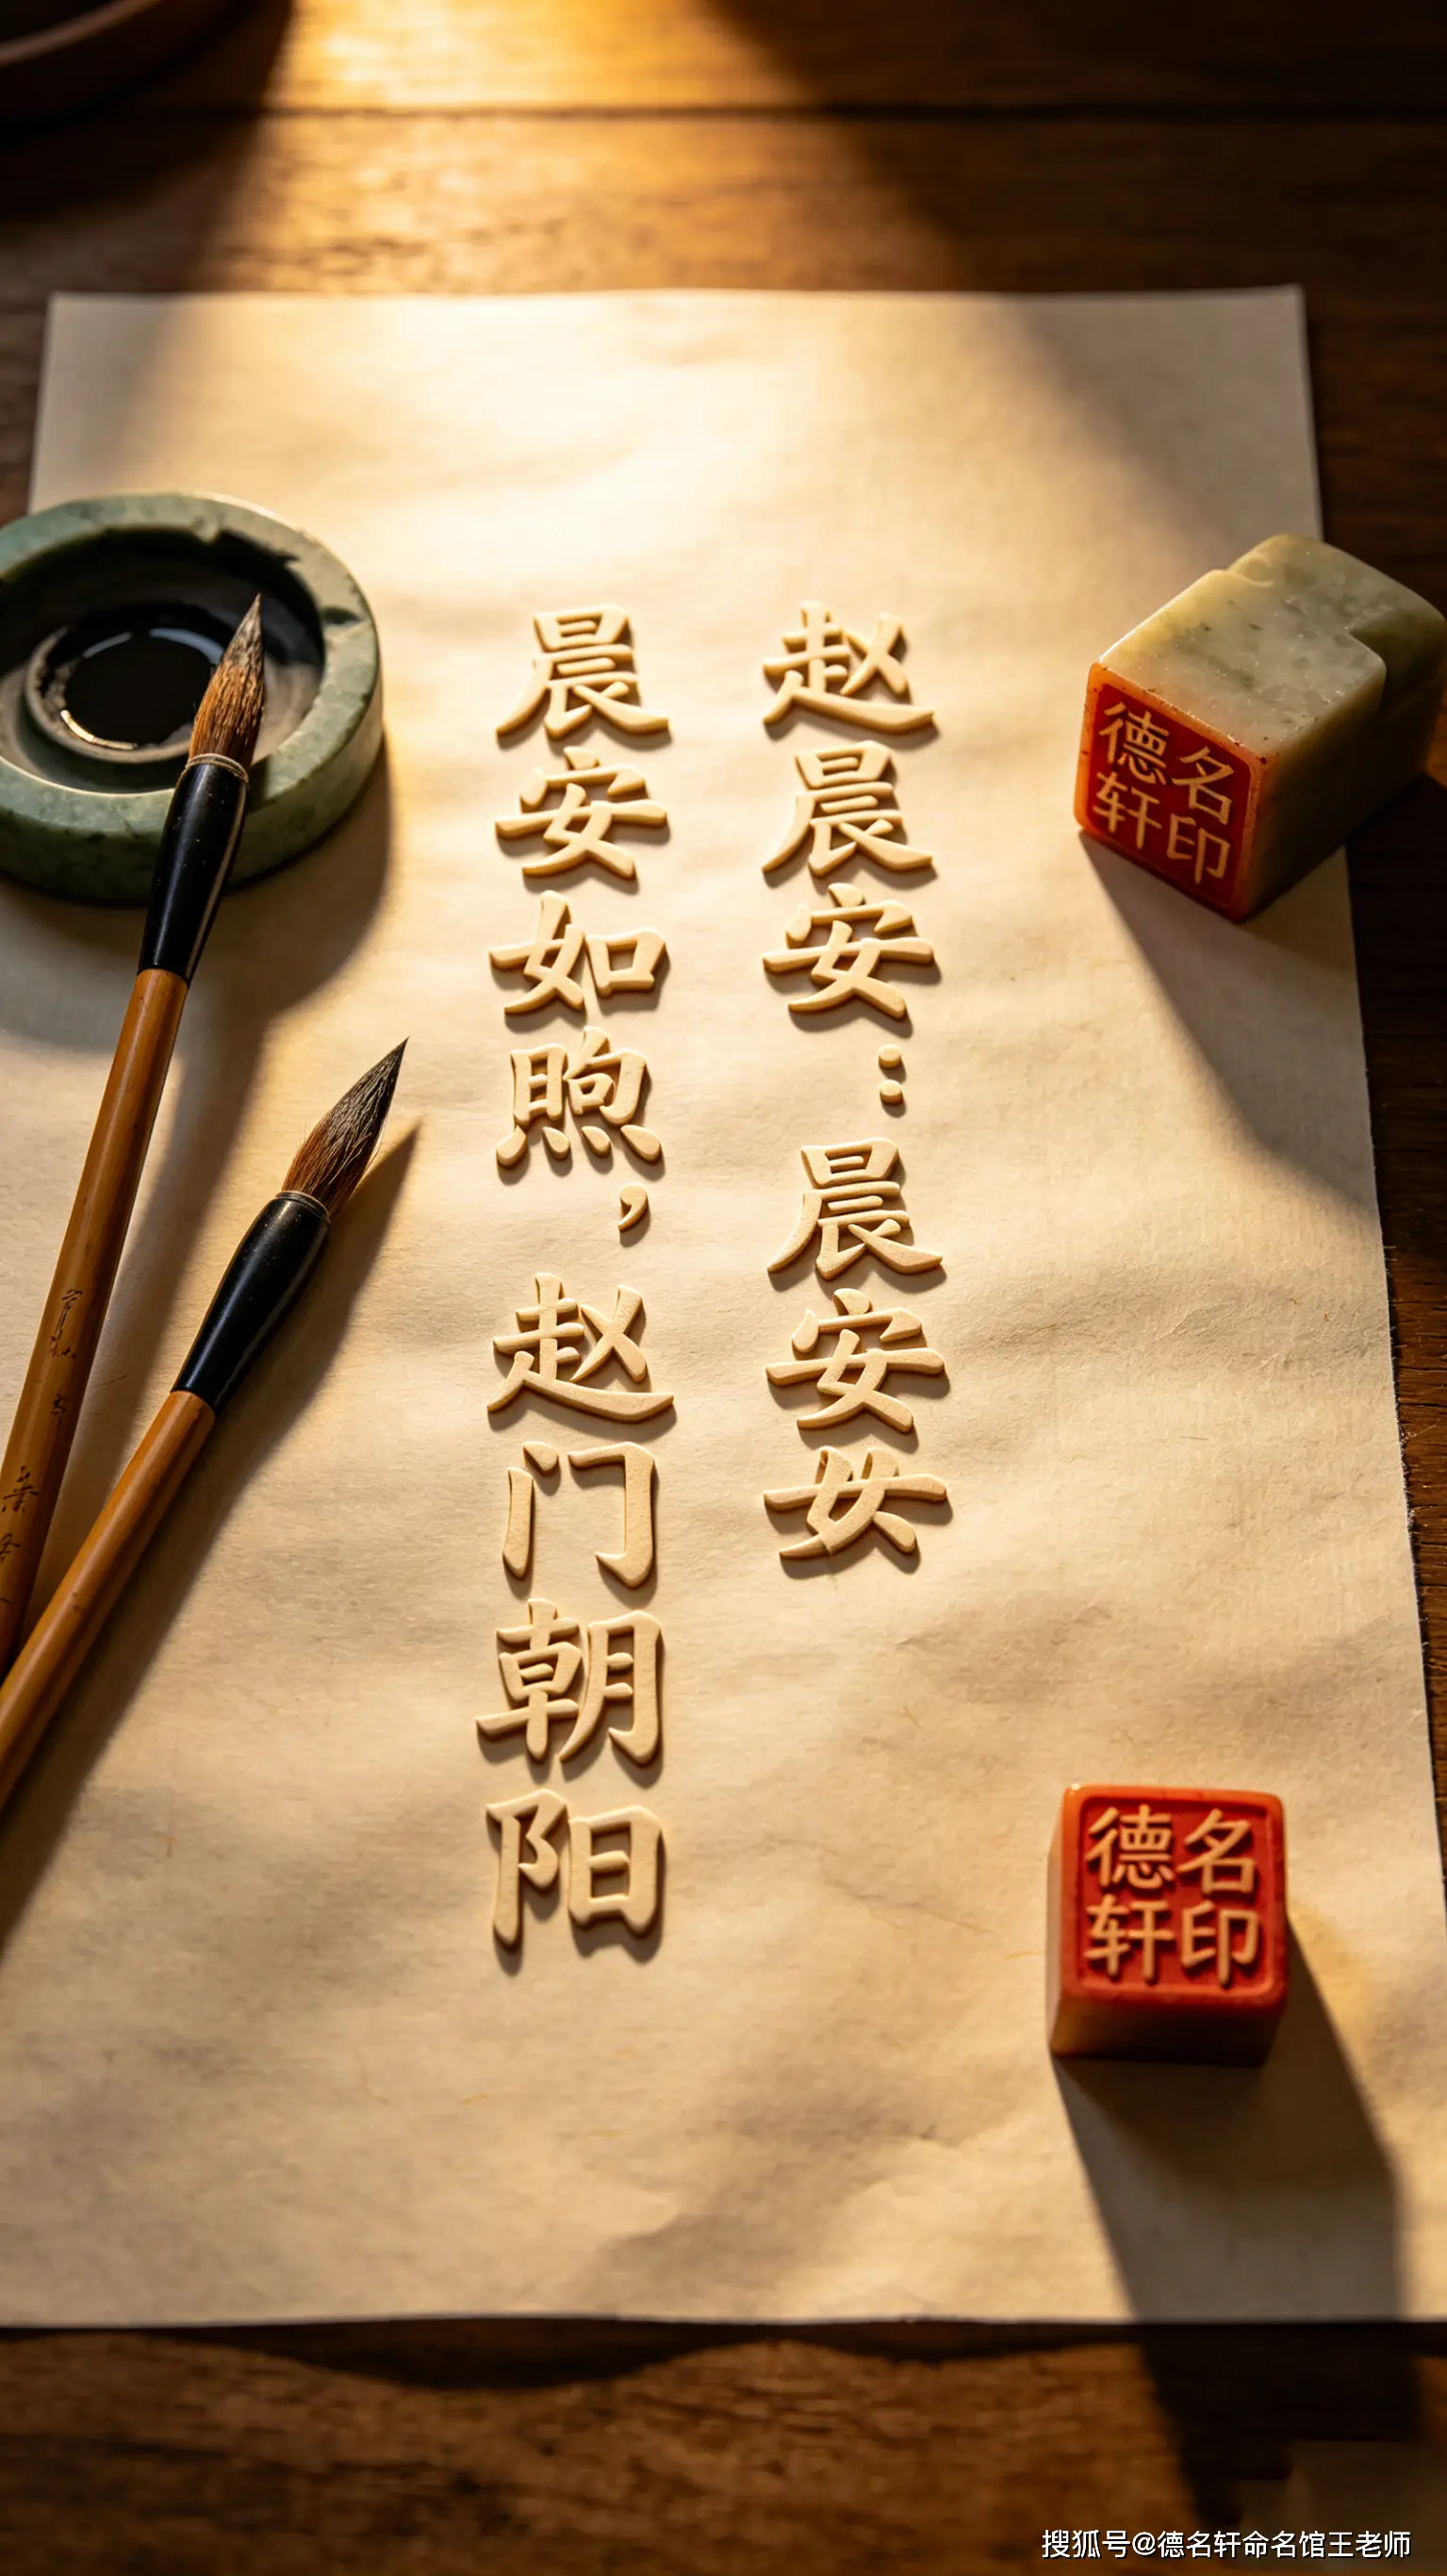 赵晨安：晨安
晨安如煦，赵门朝阳
德名
轩印
德名
轩印
搜狐号@德名轩命名馆王老师